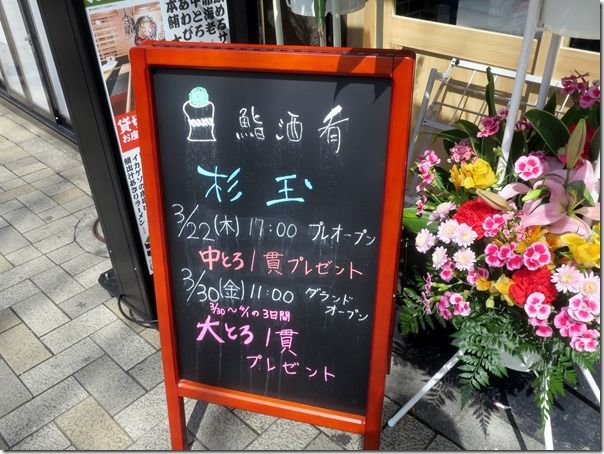 鮨 酒 肴
杉玉
3/22(木) 17:00 プレオープン
中とろ1貫プレゼント
3/30(金) 11:00 グランドオープン
3/30～4/1の3日間
大とろ1貫
プレゼント